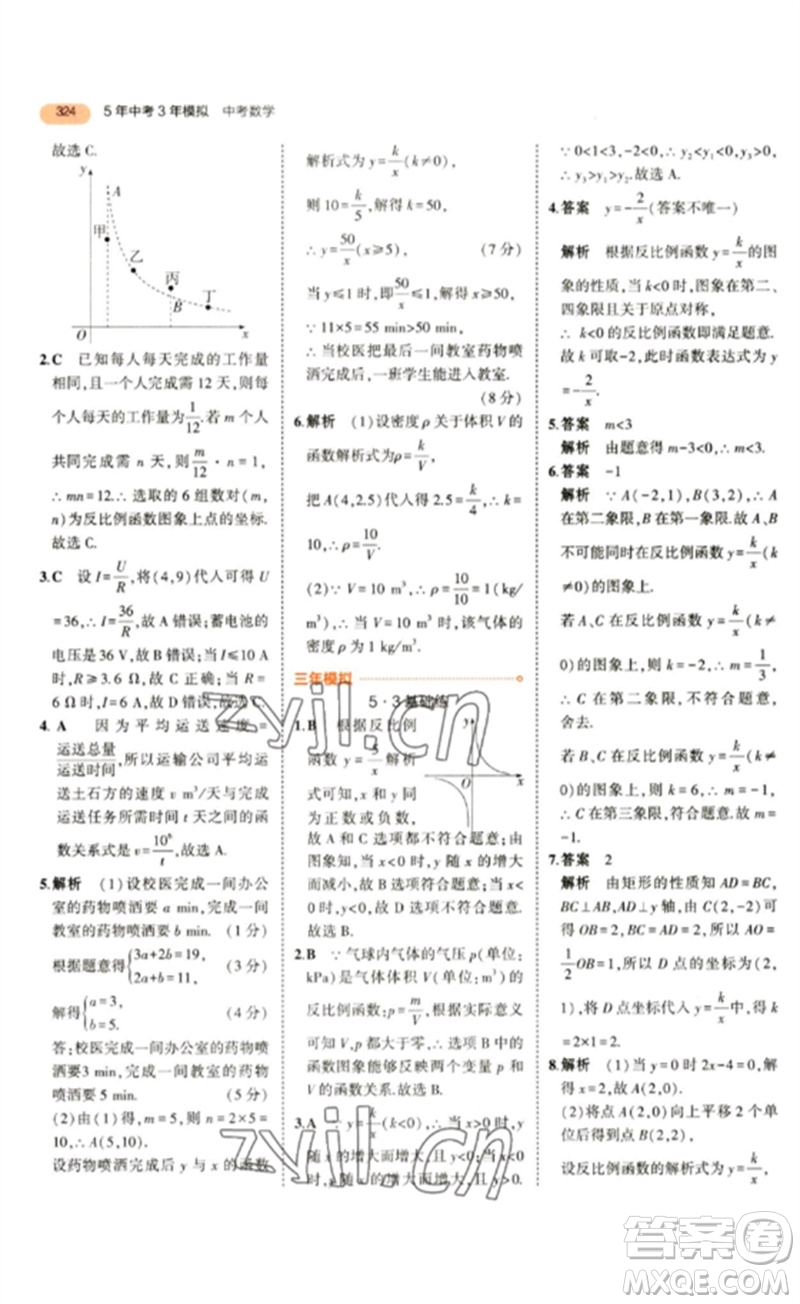 324 5年中考3年模拟 中考数学
故选C.
y
A
甲
乙
丙
B
丁
O
x
2.C 已知每人每天完成的工作量
相同,且一个人完成需12天,则每
个人每天的工作量为1/12.若m个人
共同完成需n天,则m/12·n=1,
∴mn=12.∴选取的6组数对(m,
n)为反比例函数图象上点的坐标.
故选C.
3.C 设I=U/R,将(4,9)代入可得U
=36,∴I=36/R,故A错误;蓄电池的
电压是36 V,故B错误;当I≤10 A
时,R≥3.6 Ω,故C正确;当R=
6 Ω时,I=6 A,故D错误.故选C.
4.A 因为平均运送速度=
运送总量/运送时间,所以运输公司平均运
送土石方的速度v m³/天与完成
运送任务所需时间t天之间的函
数关系式是v=10⁶/t,故选A.
5.解析 (1)设校医完成一间办公
室的药物喷洒要a min,完成一间
教室的药物喷洒要b min. (1分)
根据题意得{3a+2b=19, 2a+b=11, (3分)
解得{a=3, b=5. (4分)
答:校医完成一间办公室的药物喷
洒要3 min,完成一间教室的药物
喷洒要5 min. (5分)
(2)由(1)得,n=2×5=
10,∴A(5,10).
设药物喷洒完成后y与x的函数
解析式为y=k/x(k≠0),
则10=k/5,解得k=50,
∴y=50/x(x≥5), (7分)
当y≤1时,即50/x≤1,解得x≥50,
∵11×5=55 min>50 min,
∴当校医把最后一间教室药物喷
洒完成后,一班学生能进入教室.
(8分)
6.解析 (1)设密度ρ关于体积V的
函数解析式为ρ=k/V,
把A(4,2.5)代入得2.5=k/4,∴k=
10,∴ρ=10/V.
(2)∵V=10 m³,∴ρ=10/10=1(kg/
m³),∴当V=10 m³时,该气体的
密度ρ为1 kg/m³.
三年模拟
5·3基础练
1.B 根据反比例
函数y=5/x解析
式可知,x和y同
为正数或负数,
故A和C选项都不符合题意;由
图象知,当x<0时,y随x的增大
而减小,故D选项不符合题意;当
x<0时,y<0,故B选项符合题意.
故选B.
y
O
x
2.B ∵气球内气体的气压p(单位:
kPa)是气体体积V(单位:m³)的
反比例函数:p=m/V,根据实际意义
可知V,p都大于零,∴选项B中的
函数图象能够反映两个变量p和V
的函数关系.故选B.
3.A ∵y=k/x,k<0,∴当x>0时,y
随x的增大而增大,且y<0;当x<0
时,y随x的增大而增大,且y>0.
∵0<1<3,-2<0,∴y₂<y₁<0,y₃>0,
∴y₃>y₁>y₂.故选A.
4.答案 y=-2/x(答案不唯一)
解析 根据反比例函数y=k/x的图
象的性质,当k<0时,图象在第二、
四象限且关于原点对称,
∴k<0的反比例函数即满足题意.
故k可取-2,此时函数表达式为y
=-2/x.
5.答案 m<3
解析 由题意得m-3<0,∴m<3.
6.答案 -1
解析 ∵A(-2,1),B(3,2),∴A
在第二象限,B在第一象限,故A,B
不可能同时在反比例函数y=k/x(k
≠0)的图象上.
若A、C在反比例函数y=k/x(k≠
0)的图象上,则k=-2,∴m=1/3,
∵m=1/3>0,∴C在第二象限,
舍去.
若B、C在反比例函数y=k/x(k≠
0)的图象上,则k=6,∴m=-1,
∴C在第三象限,符合题意.∴m=
-1.
7.答案 2
解析 由矩形的性质知AD=BC,
BC⊥AB,AD⊥y轴,由C(2,-2)可
得OB=2,BC=2,∴AD=2,又AO=
1/2OB=1,∴D点的坐标为(2,
1),将D点坐标代入y=k/x中,得k
=2×1=2.
8.解析 (1)当y=0时2x-4=0,解
得x=2,∴A(2,0).
(2)将点A(2,0)向上平移2个单
位后得B(2,2),
设反比例函数的解析式为y=k/x,
zyjl.cn
zyjl.cn
答案圈
MXQE.COM